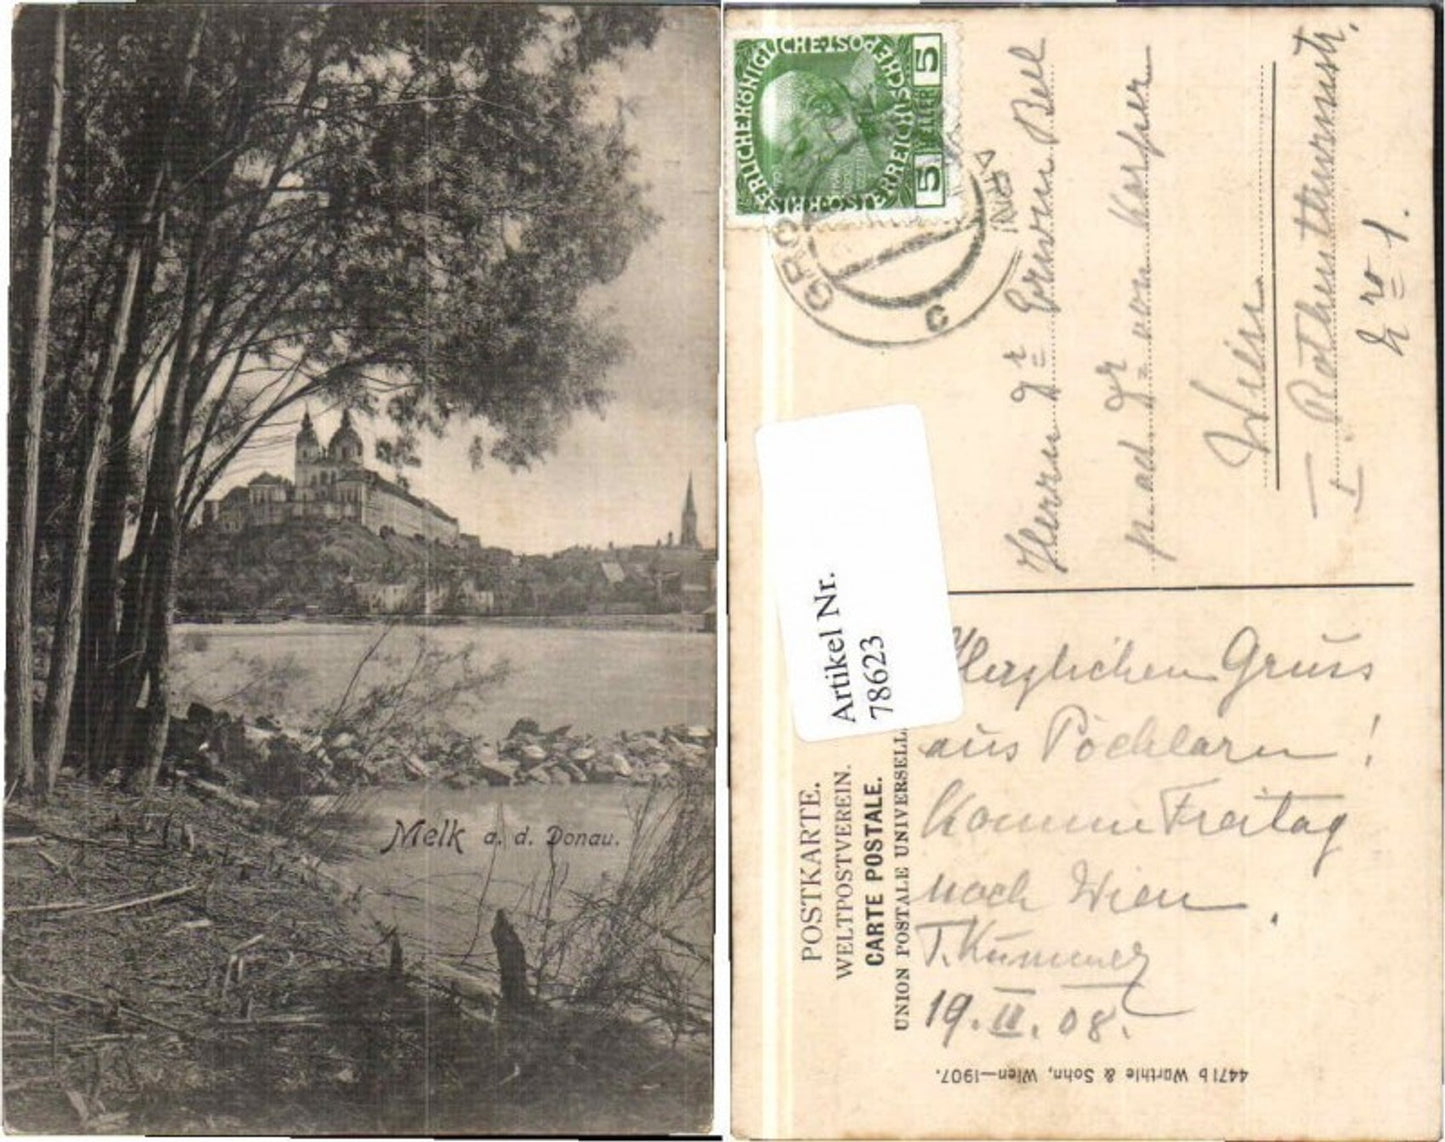 Melk a. d. Donau.
KAISERLICHEKÖNIGLICHE ÖSTERREICHISCHE POST
5 HELLER 5
Herrn Dr Erwin Bell
p. ad. Dr von Karper
Wien
I Rothenthurmstr.
No 1.
Artikel Nr.
78623
POSTKARTE.
WELTPOSTVEREIN.
CARTE POSTALE.
UNION POSTALE UNIVERSELL
Herzlichen Gruss
aus Pöchlarn!
Komme Freitag
nach Wien.
T. Kummer
19. II. 08.
4471 b Würthle & Sohn, Wien—1907.